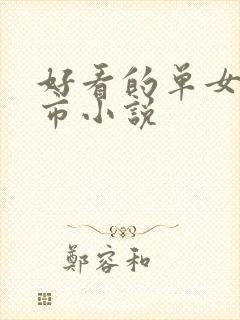 好看的单女
市小说
鄭容和